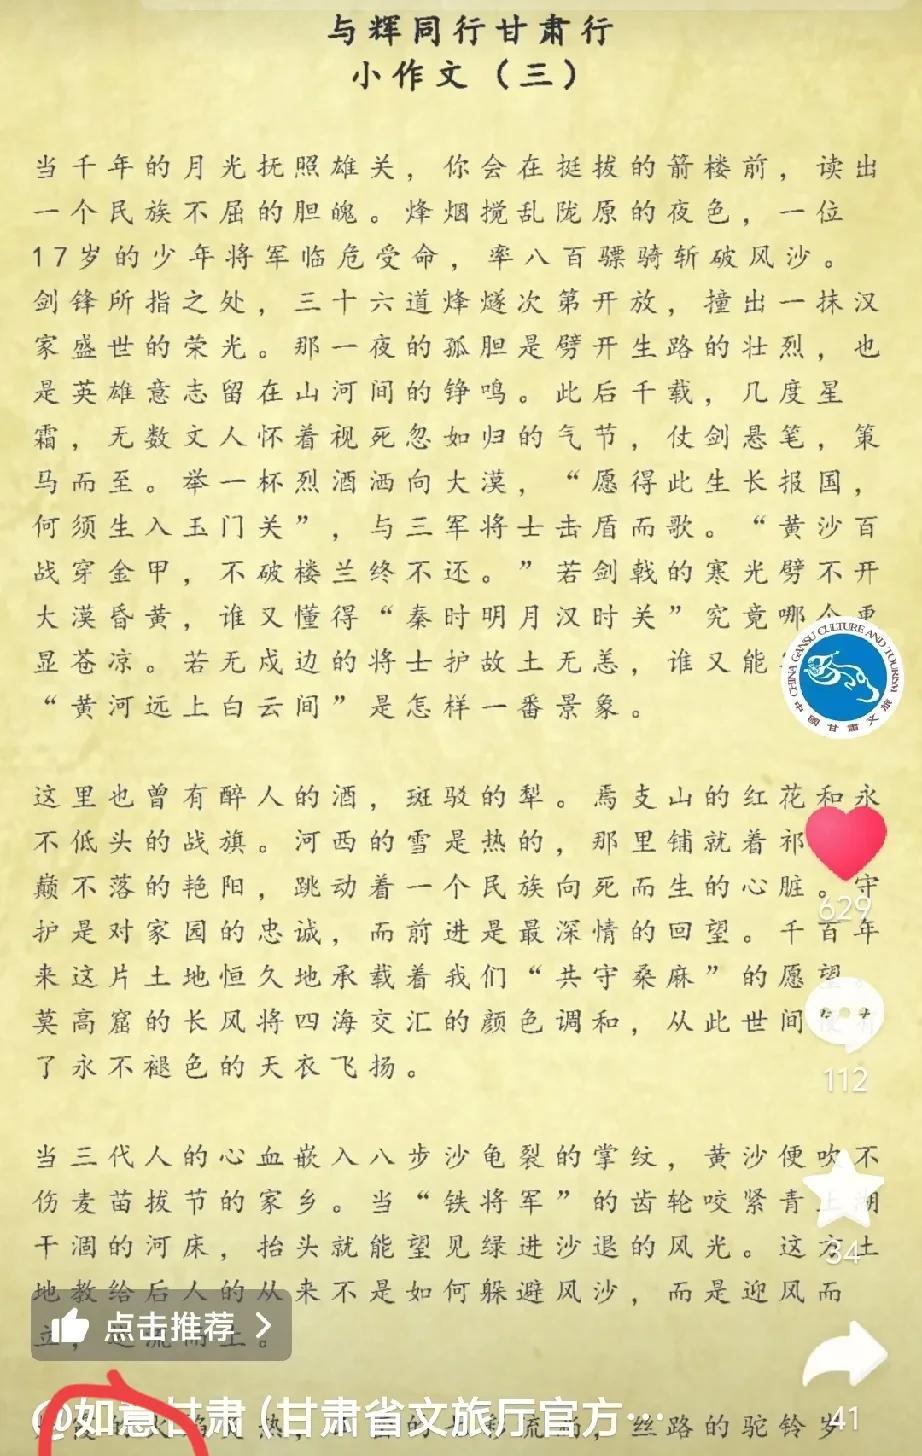 与辉同行甘肃行
小作文（三）
当千年的月光抚照雄关，你会在挺拔的箭楼前，读出
一个民族不屈的胆魄。烽烟搅乱陇原的夜色，一位
17岁的少年将军临危受命，率八百骠骑斩破风沙。
剑锋所指之处，三十六道烽燧次第开放，撞出一抹汉
家盛世的荣光。那一夜的孤胆是劈开生路的壮烈，也
是英雄意志留在山河间的铮鸣。此后千载，几度星
霜，无数文人怀着视死忽如归的气节，仗剑悬笔，策
马而至。举一杯烈酒洒向大漠，“愿得此生长报国，
何须生入玉门关”，与三军将士击盾而歌。“黄沙百
战穿金甲，不破楼兰终不还。”若剑戟的寒光劈不开
大漠昏黄，谁又懂得“秦时明月汉时关”究竟哪个更
显苍凉。若无戍边的将士护故土无恙，谁又能
“黄河远上白云间”是怎样一番景象。
CHINA GANSU CULTURE AND TOURISM
中國甘肅文旅
这里也曾有醉人的酒，斑驳的犁。焉支山的红花和永
不低头的战旗。河西的雪是热的，那里铺就着祁
巅不落的艳阳，跳动着一个民族向死而生的心脏。守
629
护是对家园的忠诚，而前进是最深情的回望。千百年
来这片土地恒久地承载着我们“共守桑麻”的愿望。
莫高窟的长风将四海交汇的颜色调和，从此世间
了永不褪色的天衣飞扬。
112
当三代人的心血嵌入八步沙龟裂的掌纹，黄沙便吹不
伤麦苗拔节的家乡。当“铁将军”的齿轮咬紧青土湖
干涸的河床，抬头就能望见绿进沙退的风光。这方土
34
地教给后人的从来不是如何躲避风沙，而是迎风而
点击推荐 >
@如意甘肃（甘肃省文旅厅官方…
丝路的驼铃岁
41